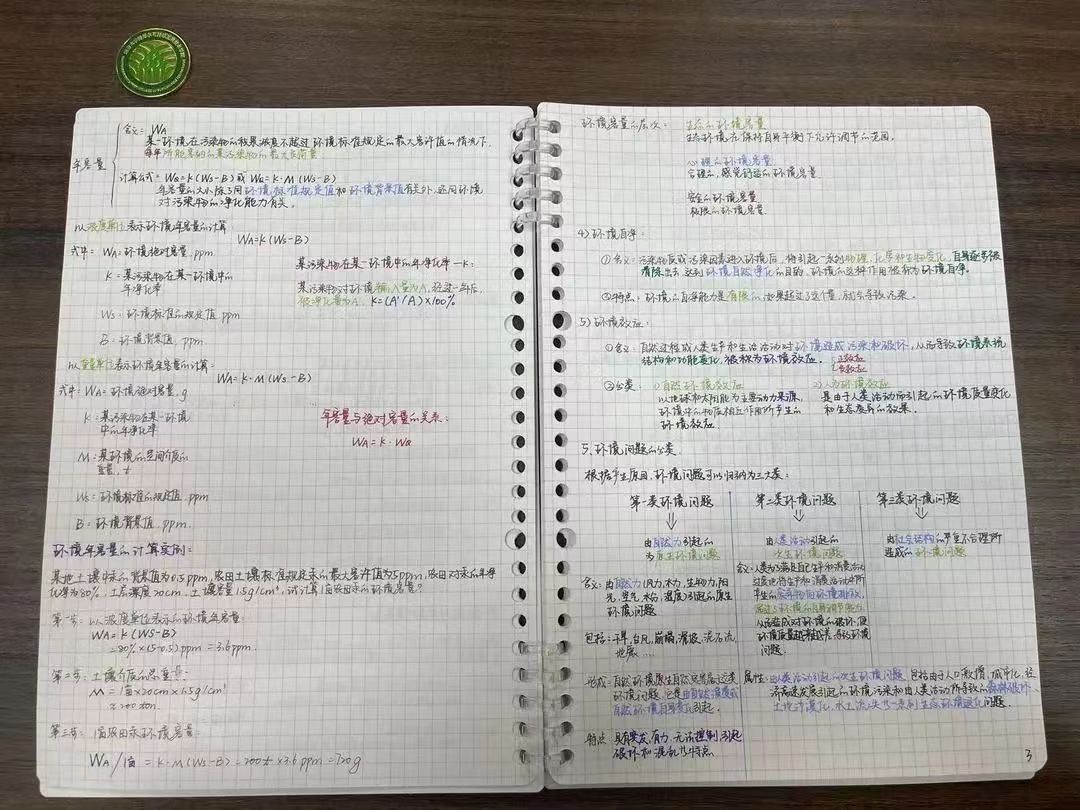 年容量
含义：WA
某一环境在污染物的积累浓度不超过环境标准规定的最大容许值的情况下，
每年所能容纳的某污染物的最大负荷量
计算公式：WA=K(WS-B) 或 WA=K·M(WS-B)
年容量的大小除了同环境标准规定值和环境背景值有关外，还同环境
对污染物的净化能力有关。
以浓度单位表示环境年容量的计算
WA=K(WS-B)
式中：WA=环境绝对容量，ppm
K：某污染物在某一环境中的
年净化率
WS：环境标准的规定值，ppm
B：环境背景值，ppm
某污染物在某一环境中的年净化率—K：
某污染物对环境输入量为A，经过一年后，
被净化量为A′，K=(A′/A)×100%
以重量单位表示环境年容量的计算：
WA=K·M(WS-B)
式中：WA=环境绝对容量，g
K：某污染物在某一环境
中的年净化率
M：某环境的空间介质的
重量，t
WS：环境标准的规定值，ppm
B：环境背景值，ppm
年容量与绝对容量的关系：
WA=K·WQ
环境年容量的计算实例：
某地土壤中汞的背景值为0.5ppm，农田土壤标准规定汞的最大容许值为5ppm，农田对汞的年净
化率为80%，土层深度20cm，土壤容量1.5g/cm³，试计算1亩农田汞的环境容量？
第一步：以浓度单位表示的环境年容量
WA=K(WS-B)
=80%×(5-0.5)ppm=3.6ppm
第二步：土壤介质的总重量：
M=1亩×20cm×1.5g/cm³
≈200ton
第三步：1亩农田汞环境容量：
WA/1亩=K·M(WS-B)=200t×3.6ppm=720g
环境容量的层次：生态的环境容量
生态环境在保持自身平衡下允许调节的范围。
心理的环境容量
合理的，感觉舒适的环境容量
安全的环境容量
极限的环境容量
4）环境自净：
①含义：污染物质或污染因素进入环境后，将引起一系列物理，化学和生物变化，自身逐步被
清除出去，达到环境自然净化的目的，环境的这种作用被称为环境自净。
②特点：环境的自净能力是有限的，如果超过了这个量，就会导致污染。
5）环境效应：
①含义：自然过程或人类生产和生活活动对环境造成污染和破坏，从而导致环境系统
结构和功能变化，被称为环境效应。
正效应
负效应
②分类：1）自然环境效应
以地球和太阳能为主要动力来源，
环境中的物质相互作用所产生的
环境效应
2）人为环境效应
是由于人类活动所引起的环境质量变化
和生态变异的效果。
5、环境问题的分类
根据产生原因，环境问题可以归纳为三大类：
第一类环境问题
第二类环境问题
第三类环境问题
由自然力引起的
为原生环境问题
由人类活动引起的
次生环境问题
由社会结构的严重不合理所
造成的环境问题
含义：由自然力（风力，水力，生物力，阳
光，空气，水份，温度）引起的原生
环境问题
含义：人类为了满足自己生产和消费
过度地将生产和消费活动中所
产生的废弃物向环境排放，
超过了环境的自身调节能力
从而造成对环境的破坏，使
环境质量越来越差，导致环境
问题。
包括：干旱，台风，崩塌，滑坡，泥石流
地震……
形成：自然环境原生自然灾害属于这类
环境问题，它是由自然演变或
自然环境自身变化引起。
属性：由人类活动引起的次生环境问题，包括由于人口激增，城市化，经
济高速发展引起的环境污染和由人类活动所导致的森林破坏，
土地沙漠化，水土流失等一系列生态环境退化问题。
特点：具有突发，有力，无法控制，引起
破坏和混乱等特点
3